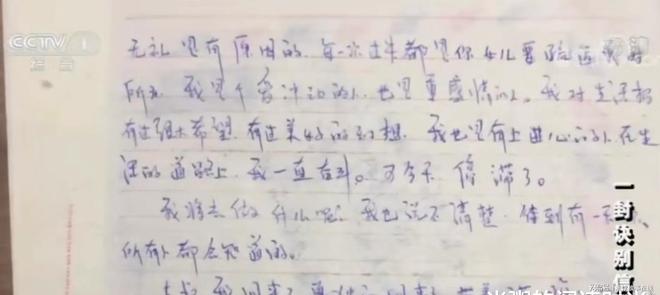 CCTV 1
综合
无礼是有原因的。每一次过年都是你女儿
所为。我是个易冲动的人,也是重感情的人。我对生活抱
有过很大希望,有过美好的幻想。我也是有上进心的人,在生
活的道路上,我一直奋斗。可今天停滞了。
我将去做什么呢?我也说不清楚。待到有一天
所有人都会知道的。
一封诀别信